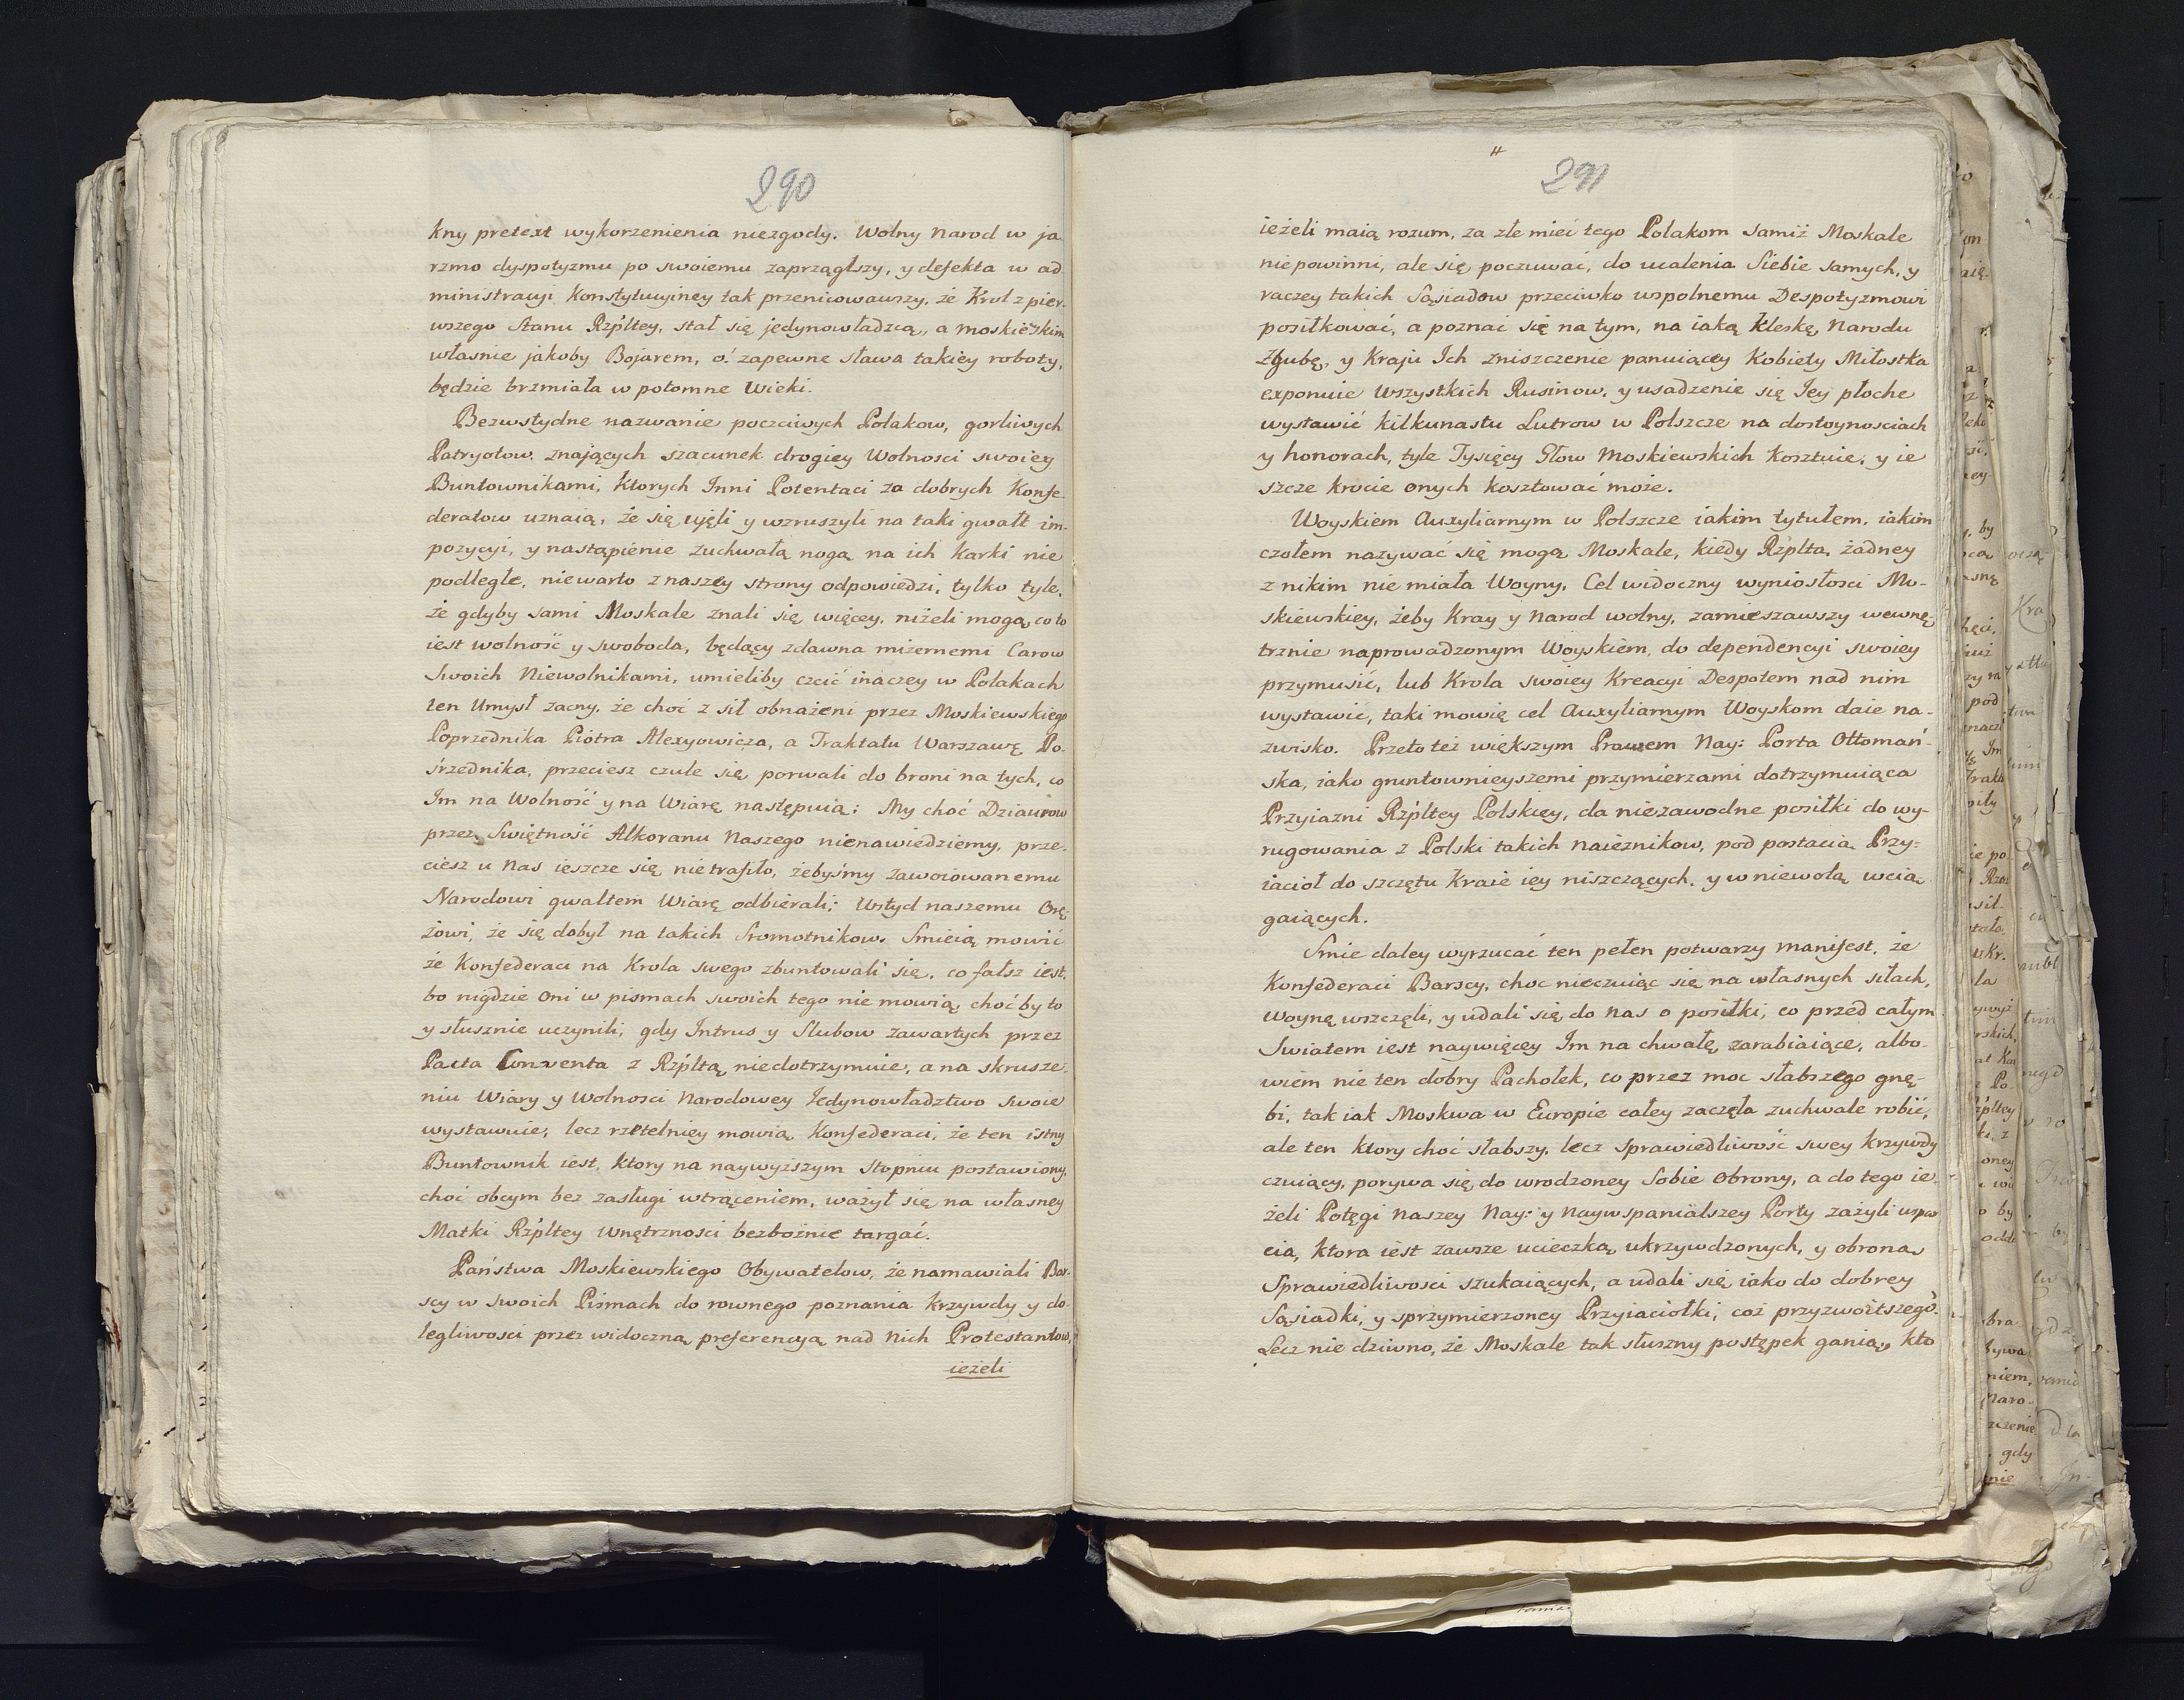 290
kny pretext wykorzenienia niezgody. Wolny Narod w ja
rzmo dyspotyzmu po swoiemu zaprzągłszy, y defekta w ad
ministracyi Konstytucyiney tak przenicowawszy, że Krol z pier-
wszego Stanu Rzpltey, stał się jedynowładzcą, a moskiewskim
własnie jakoby Bojarem, o! zapewne sława takiey roboty,
będzie brzmiała w potomne Wieki.
Bezwstydne nazwanie poczciwych Polakow, gorliwych
Patryotow, znających szacunek drogiey Wolnosci swoiey
Buntownikami, ktorych Inni Potentaci za dobrych Konfe-
deratow uznaią, że się ujęli y wzruszyli na taki gwałt im-
pozycyi, y nastąpienie zuchwałą nogą na ich karki nie
podległe, niewarto z naszey strony odpowiedzi, tylko tyle,
że gdyby sami Moskale znali się więcey, niżeli mogą, co to
iest wolność y swoboda, będący zdawna mizernemi Carow
Swoich Niewolnikami, umieliby czcić inaczey w Polakach
ten Umysł zacny, że choć z sił obnażeni przez Moskiewskiego
Poprzednika Piotra Alexyowicza, a Traktatu Warszawę Po-
śrzednika, przeciesz czule się porwali do broni na tych, co
Im na Wolność y na Wiarę następuią; My choć Dziaurow
przez Swiętność Alkoranu Naszego nienawiedziemy, prze-
ciesz u Nas ieszcze się nietrafiło, żebyśmy zawoiowanemu
Narodowi gwałtem Wiarę odbierali; Wstyd naszemu Orę-
żowi, że się dobył na takich Sromotnikow. Smieią mowić
że Konfederaci na Krola swego zbuntowali się, co fałsz iest,
bo nigdzie oni w pismach swoich tego nie mowią, choćby to
y słusznie uczynili; gdy Intrus y Slubow zawartych przez
Pacta Conventa z Rzpltą niedotrzymuie, a na skrusze-
niu Wiary y Wolnosci Narodowey Jedynowładztwo swoie
wystawuie; lecz rzetelniey mowią Konfederaci, że ten istny
Buntownik iest, ktory na naywyższym stopniu postawiony,
choć obcym bez zasługi wtrąceniem, ważył się na własney
Matki Rzpltey wnętrznosci bezbożnie targać.
Państwa Moskiewskiego Obywatelow, że namawiali Bar-
scy w swoich Pismach do rownego poznania krzywdy y do-
legliwosci przez widoczną preferencyą nad Nich Protestantow,
ieżeli
291
ieżeli maią rozum, za złe mieć tego Polakom samiż Moskale
niepowinni, ale się poczuwać, do ucalenia Siebie samych, y
raczey takich Sąsiadow przeciwko wspolnemu Despotyzmowi
posiłkować, a poznać się na tym, na iaką kleskę Narodu
Zgubę, y Kraju Ich zniszczenie panuiącey Kobiety Miłostka
exponuie Wszystkich Rusinow, y usadzenie się Jey płoche
wystawić kilkunastu Lutrow w Polszcze na dostoynosciach
y honorach, tyle Tysięcy Głow Moskiewskich kosztuie, y ie
szcze krocie onych kosztować może.
Woyskiem Auxyliarnym w Polszcze iakim tytułem, iakim
czołem nazywać się mogą Moskale, kiedy Rzplta, żadney
z nikim nie miała Woyny, Cel widoczny wyniosłosci Mo-
skiewskiey, żeby Kray y Narod wolny, zamieszawszy wewnę-
trznie naprowadzonym Woyskiem, do dependencyi swoiey
przymusić, lub Krola swoiey Kreacyi Despotem nad nim
wystawić, taki mowię cel Auxyliarnym Woyskom daie na-
zwisko. Przeto też większym Prawem Nay: Porta Ottomań-
ska, iako gruntownieyszemi przymierzami dotrzymuiąca
Przyiazni Rzpltey Polskiey, da niezawodne posiłki do wy-
rugowania z Polski takich naiezników, pod postacią Przy-
iacioł do szczętu Kraie iey niszczących, y w niewolą wcią-
gaiących.
Smie daley wyrzucać ten pełen potwarzy manifest, że
Konfederaci Barscy, choc nieczuiąc się na własnych siłach,
Woynę wszczęli, y udali się do nas o posiłki, co przed całym
Swiatem iest naywięcey Im na chwałę zarabiaiące, albo-
wiem nie ten dobry Pachołek, co przez moc słabszego gnę-
bi, tak iak Moskwa w Europie całey zaczęła zuchwale robić,
ale ten ktory choć słabszy, lecz Sprawiedliwość swey krzywdy
czuiący, porywa się do wrodzoney Sobie Obrony, a do tego ie-
żeli Potęgi Naszey Nay: y Naywspanialszey Porty zażyli wspar
cia, ktora iest zawsze ucieczką ukrzywdzonych, y obroną
Sprawiedliwosci szukaiących, a udali się iako do dobrey
Sąsiadki, y sprzymierzoney Przyiaciołki, coż przyzwoitszego?
Lecz nie dziwno, że Moskale tak słuszny postępek ganią, kto